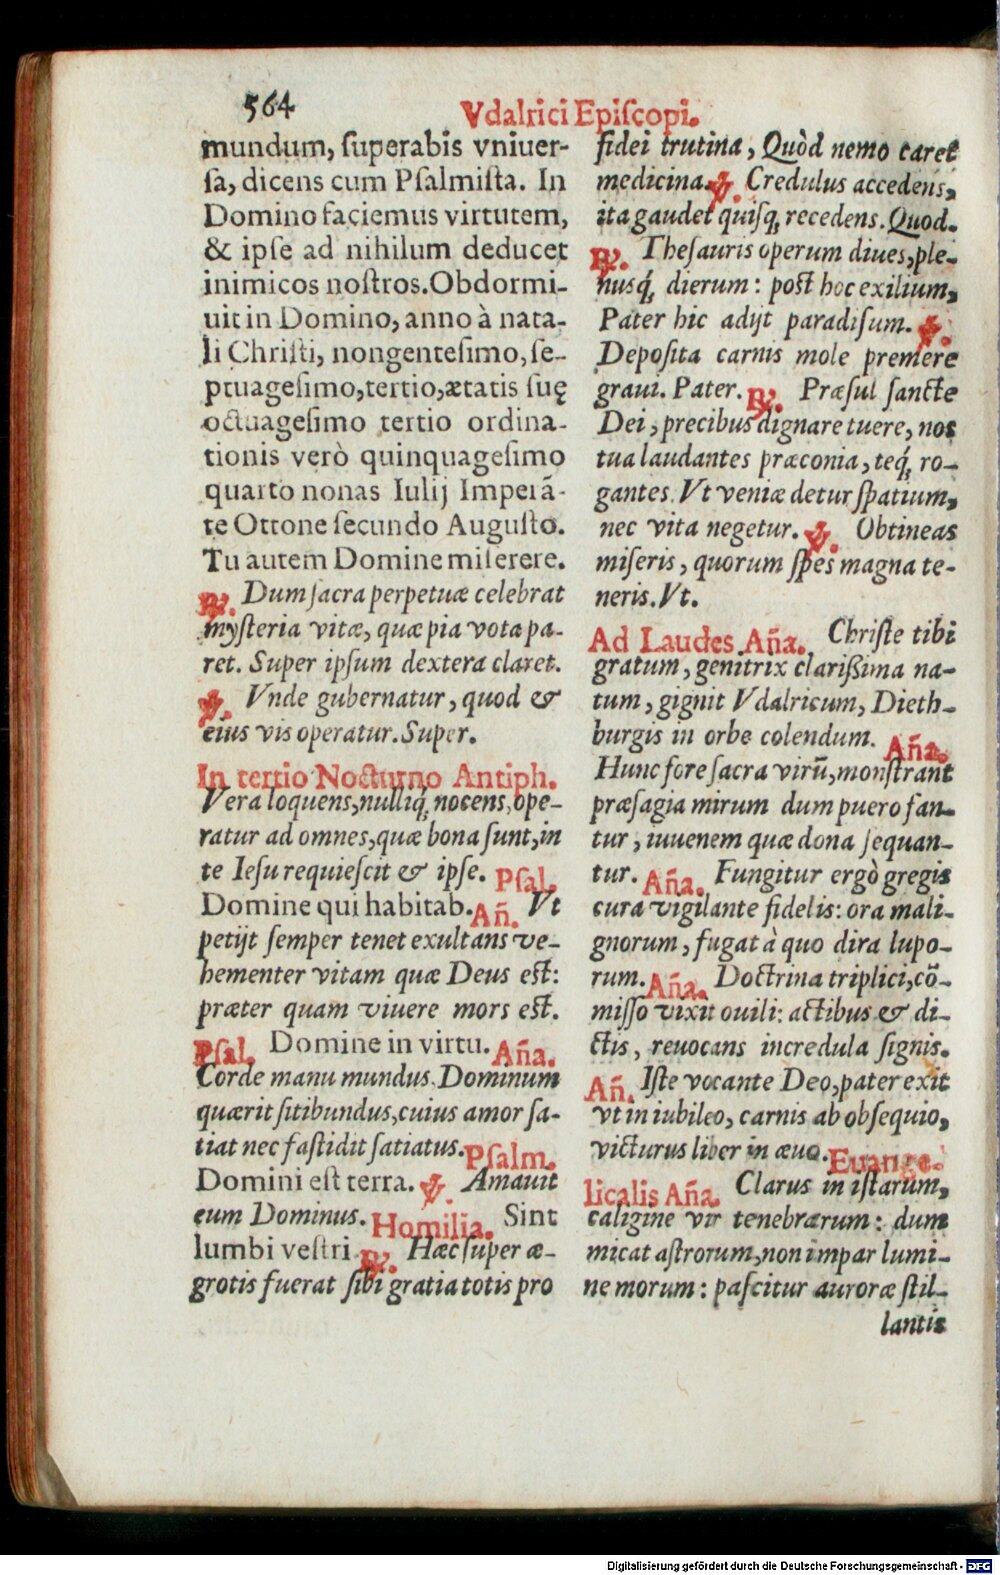 564
Vdalrici Epiſcopi.
mundum, ſuperabis vniuer-
ſa, dicens cum Pſalmiſta. In
Domino faciemus virtutem,
& ipſe ad nihilum deducet
inimicos noſtros. Obdormi-
uit in Domino, anno à nata-
li Chriſti, nongenteſimo, ſe-
ptuageſimo, tertio, ætatis ſuę
octuageſimo tertio ordina-
tionis verò quinquageſimo
quarto nonas Iulij Imperā-
te Ottone ſecundo Auguſto.
Tu autem Domine miſerere.
℟. Dum ſacra perpetuæ celebrat
myſteria vitæ, quæ pia vota pa-
ret. Super ipſum dextera claret.
℣. Vnde gubernatur, quod &
eius vis operatur. Super.
In tertio Nocturno Antiph.
Vera loquens, nulliq́; nocens, ope-
ratur ad omnes, quæ bona ſunt, in
te Ieſu requieſcit & ipſe. Pſal.
Domine qui habitab. Añ. Vt
petijt ſemper tenet exultans ve-
hementer vitam quæ Deus eſt:
præter quam viuere mors eſt.
Pſal. Domine in virtu. Aña.
Corde manu mundus. Dominum
quærit ſitibundus, cuius amor ſa-
tiat nec faſtidit ſatiatus. Pſalm.
Domini eſt terra. ℣. Amauit
eum Dominus. Homilia. Sint
lumbi veſtri ℟. Hæc ſuper æ-
grotis fuerat ſibi gratia totis pro
fidei trutina, Quòd nemo caret
medicina. ℣. Credulus accedens,
ita gaudet quiſq; recedens. Quod.
℟. Theſauris operum diues, ple-
nusq́; dierum: poſt hoc exilium,
Pater hic adijt paradiſum. ℣.
Depoſita carnis mole premere
graui. Pater. ℟. Præſul ſancte
Dei, precibus dignare tuere, nos
tua laudantes præconia, teq́; ro-
gantes. Vt veniæ detur ſpatium,
nec vita negetur. ℣. Obtineas
miſeris, quorum ſpes magna te-
neris. Vt.
Ad Laudes Aña. Chriſte tibi
gratum, genitrix clarißima na-
tum, gignit Vdalricum, Dieth-
burgis in orbe colendum. Aña.
Hunc fore ſacra virū, monſtrant
præſagia mirum dum puero fan-
tur, iuuenem quæ dona ſequan-
tur. Aña. Fungitur ergò gregis
cura vigilante fidelis: ora mali-
gnorum, fugat à quo dira lupo-
rum. Aña. Doctrina triplici, cō-
miſſo vixit ouili: actibus & di-
ctis, reuocans incredula ſignis.
Añ. Iſte vocante Deo, pater exit
vt in iubileo, carnis ab obſequio,
victurus liber in æuo. Euange-
licalis Aña. Clarus in iſtarum,
caligine vir tenebrarum: dum
micat aſtrorum, non impar lumi-
ne morum: paſcitur auroræ ſtil-
lantis
Digitalisierung gefördert durch die Deutsche Forschungsgemeinschaft - DFG